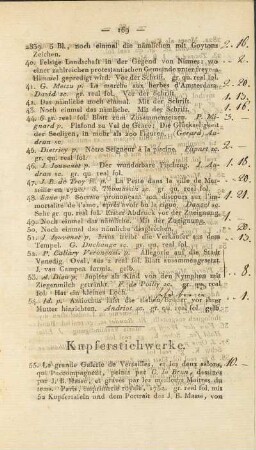 — 169 —
2839. 5 Bl. noch einmal die nämlichen mit Goytons
Zeichen.
40. Felsige Landschaft in der Gegend von Nimes: wo
einer zahlreichen protestantischen Gemeinde unter freyem
Himmel gepredigt wird. Vor der Schrift. gr. qu. real fol.
41. G. Metzu p. Le marché aux herbes d'Amsterdam.
David sc. gr. real fol. Vor der Schrift
42. Das nämliche noch einmal. Mit der Schrift.
43. Noch einmal das nämliche. Mit der Schrift.
44. 6 gr. real fol. Blatt zum Zusammensetzen. P. Mi-
gnard p. Plafond zu Val de Grace: Die Glückseligkeit
der Seeligen, in mehr als 200 Figuren. Gerard Au-
dran sc.
45. Dietricy p. Notre Seigneur à la piscine. Flipart sc.
gr. qu. real fol.
46. J. Jouvenet p. Der wunderbare Fischzug. J. Au-
dran sc. gr. qu. real fol.
47. J. F. de Troy p. La Peste dans la ville de Mar-
seille en 1720. S. Thomassin sc. gr. qu. real fol.
48. Sane p. Socrate prononçant son discours sur
l'immortalité de l'ame, après avoir bu la ciguë. Danzel
sc. gr. qu. real fol. Erster Abdruck vor der Zueignung.
49. Das nämliche noch einmal. Mit der Zueignung.
50. Noch einmal das nämliche dasgleichen.
51. J. Jouvenet p. Jesus treibt die Verkäufer aus dem
Tempel. G. Duchange sc. gr. qu. real fol.
52. P. Caliary Veronensis p. Allegorie auf die Stadt
Venedig. Oval, aus 2 real fol. Blatt zusammengesetzt.
J. van Campen formis. gelb.
53. Jupiter als Kind von den Nymphen mit
Ziegenmilch getränkt. F. de Poilly sc. gr. qu. real
fol. Hat ein kleines Loch.
54. Id. p. Antiochus läßt die sieben Brüder vor ihrer
Mutter hinrichten. Andriot sc. gr. qu. real fol. gelb.
Kupferstichwerke.
55. La grande Galerie de Versailles, et les deux salons,
qui l'accompagnent, peints par C. le Brun, dessinés
par J. B. Massé, et gravés par les meilleurs Maitres du
tems. Paris, imprimerie royale, 1752. gr. real fol. mit
52 Kupfertafeln und dem Portrait des J. B. Massé, von